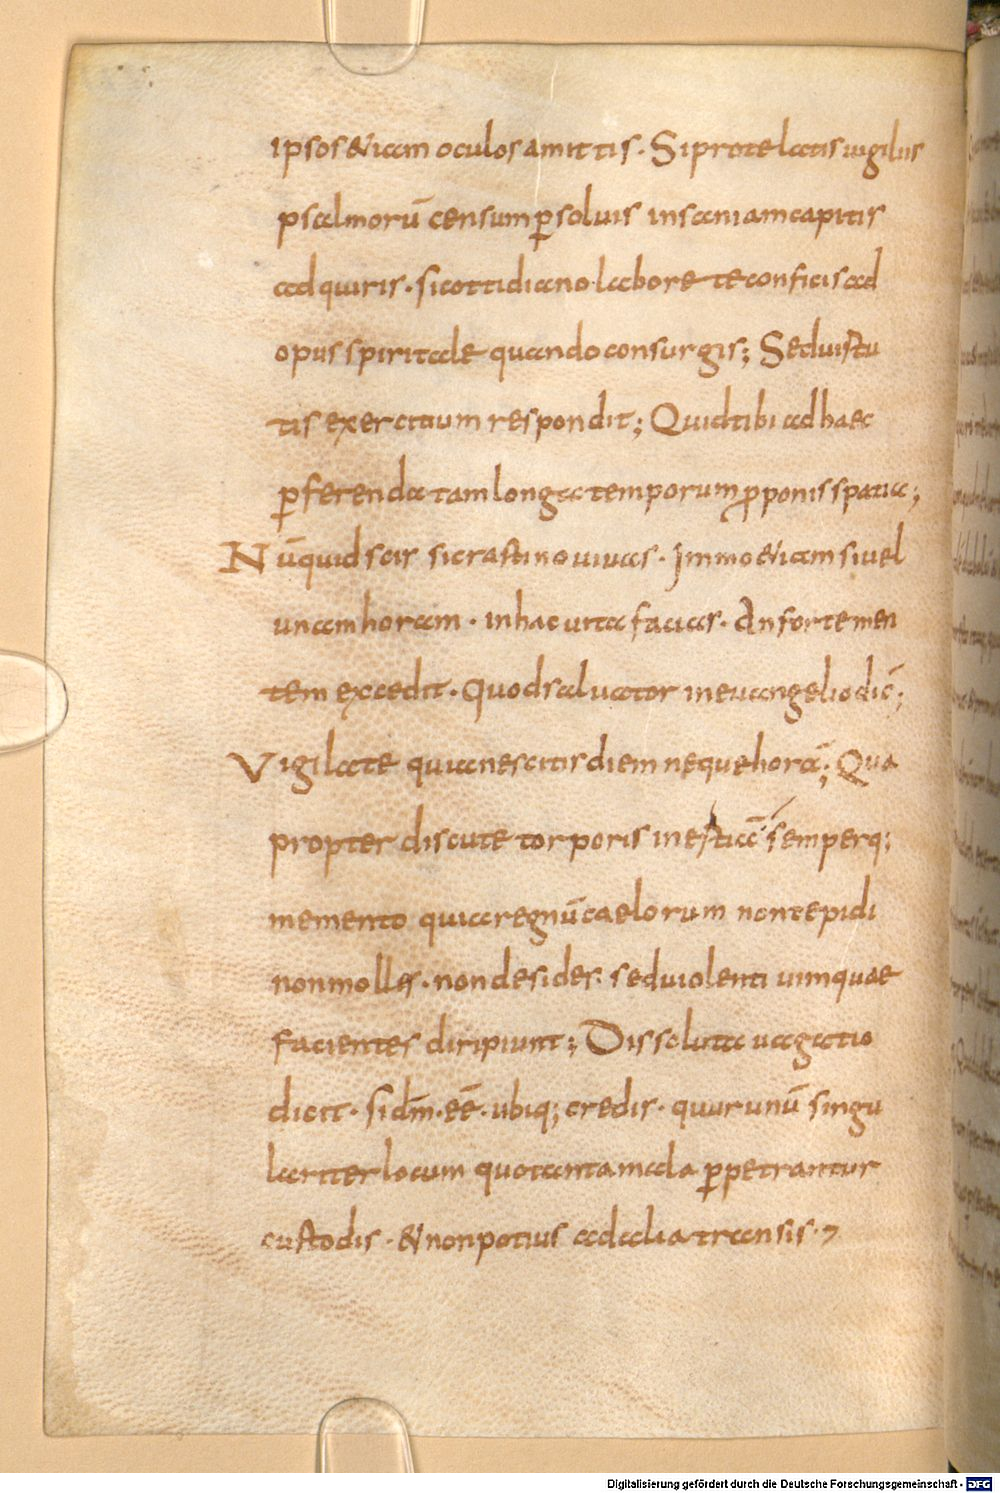 ipsos & iam oculos amittis. Si protelatis uigiliis
psalmorū censum p̱soluis insaniam capitis
adquiris. si cottidiano labore te conficis ad
opus spiritale quando consurgis; Sed uirtu
tis exercitium respondit; Quid tibi ad haec
p̱ferenda tam longa temporum ꝓponis spatia;
Nūquid scis si crastino uiuas. Immo & iam si uel
unam horam. in hac uita facias. An forte men
tem excedit. quod saluator in euangelio dic̄;
Vigilate quia nescitis diem neque horā; Qua
propter discute torporis inertiā semperq;
memento quia regnū caelorum non tepidi
non molles. non desides. sed uiolenti uimquae
facientes diripiunt; Dissoluta uagatio
dicit. si dm̄. eē. ubiq; credis. quur unū singu
lariter locum quo tanta mala p̱petrantur
custodis. & non potius ad alia transis.
Digitalisierung gefördert durch die Deutsche Forschungsgemeinschaft - DFG